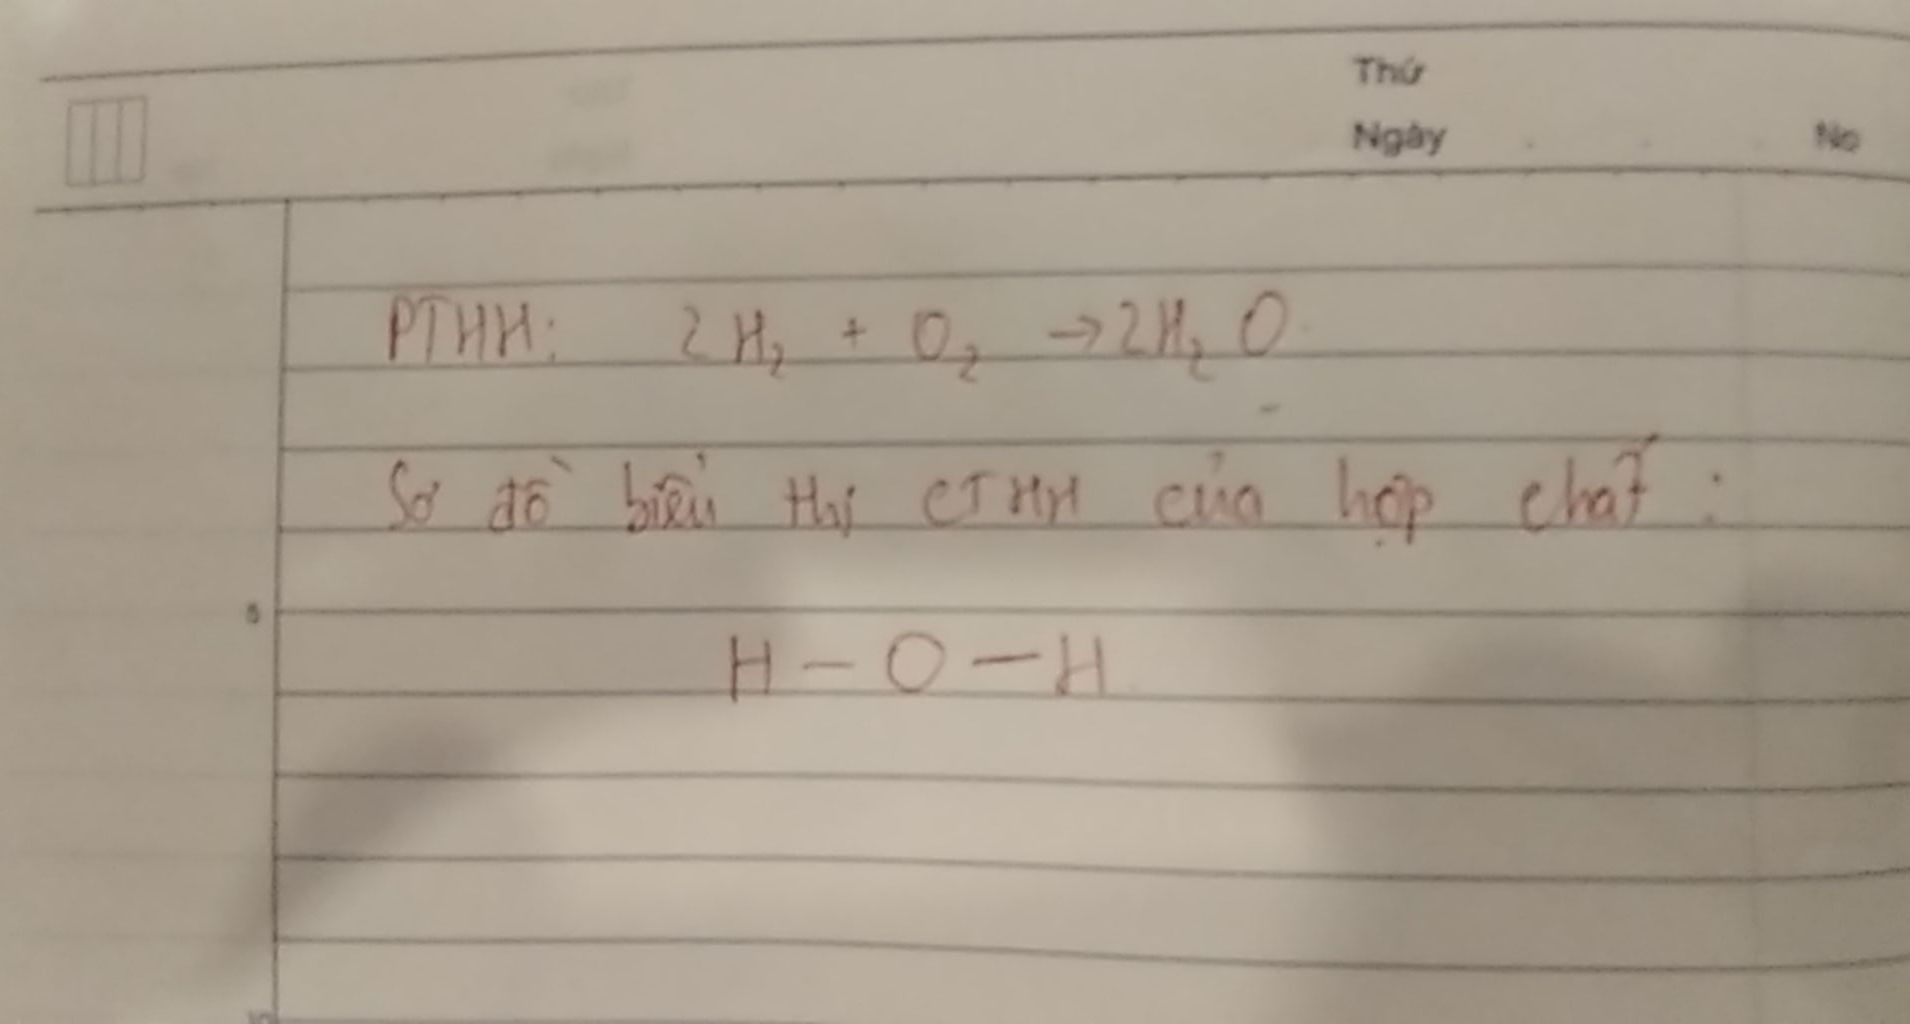 Thứ
Ngày No
PTHH: 2H₂ + O₂ → 2H₂O
Sơ đồ biểu thị CTHH của hợp chất :
5
H – O – H
10